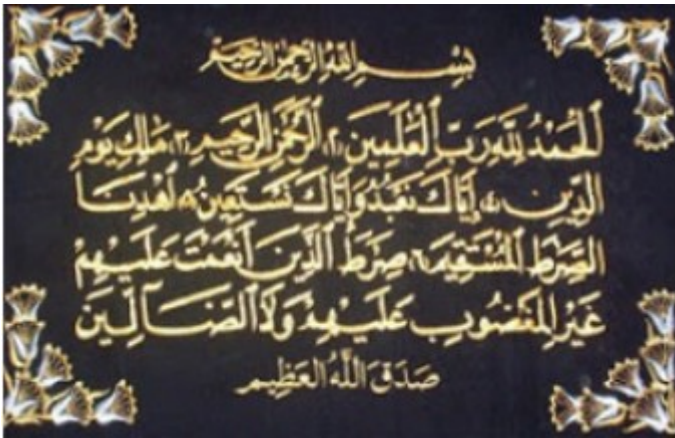 بِسْمِ اللَّهِ الرَّحْمَٰنِ الرَّحِيمِ
ٱلْحَمْدُ لِلَّهِ رَبِّ ٱلْعَٰلَمِينَ ٢ ٱلرَّحْمَٰنِ ٱلرَّحِيمِ ٣ مَٰلِكِ يَوْمِ
ٱلدِّينِ ٤ إِيَّاكَ نَعْبُدُ وَإِيَّاكَ نَسْتَعِينُ ٥ ٱهْدِنَا
ٱلصِّرَٰطَ ٱلْمُسْتَقِيمَ ٦ صِرَٰطَ ٱلَّذِينَ أَنْعَمْتَ عَلَيْهِمْ
غَيْرِ ٱلْمَغْضُوبِ عَلَيْهِمْ وَلَا ٱلضَّآلِّينَ
صَدَقَ اللَّهُ العَظِيم